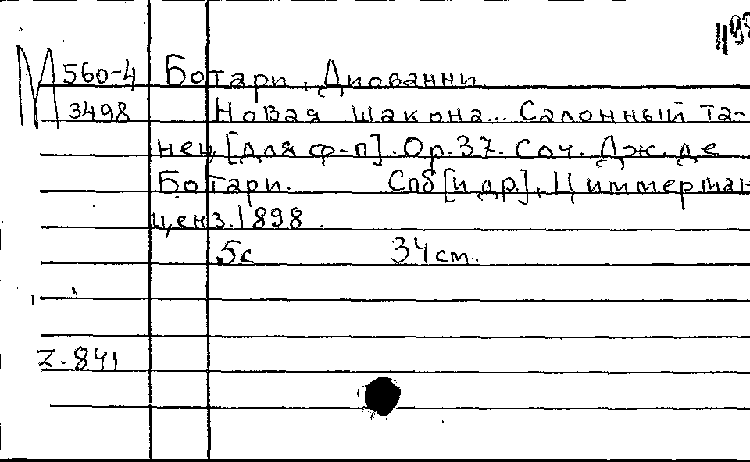 М 560-4 Ботари, Джованни
3498 Новая шакона... Салонный та-
нец [для ф-п]. Ор.37. Соч. Дж. де
Ботари. Спб [и др], Циммерман
ценз. 1898.
5с 34 см.
Z-841